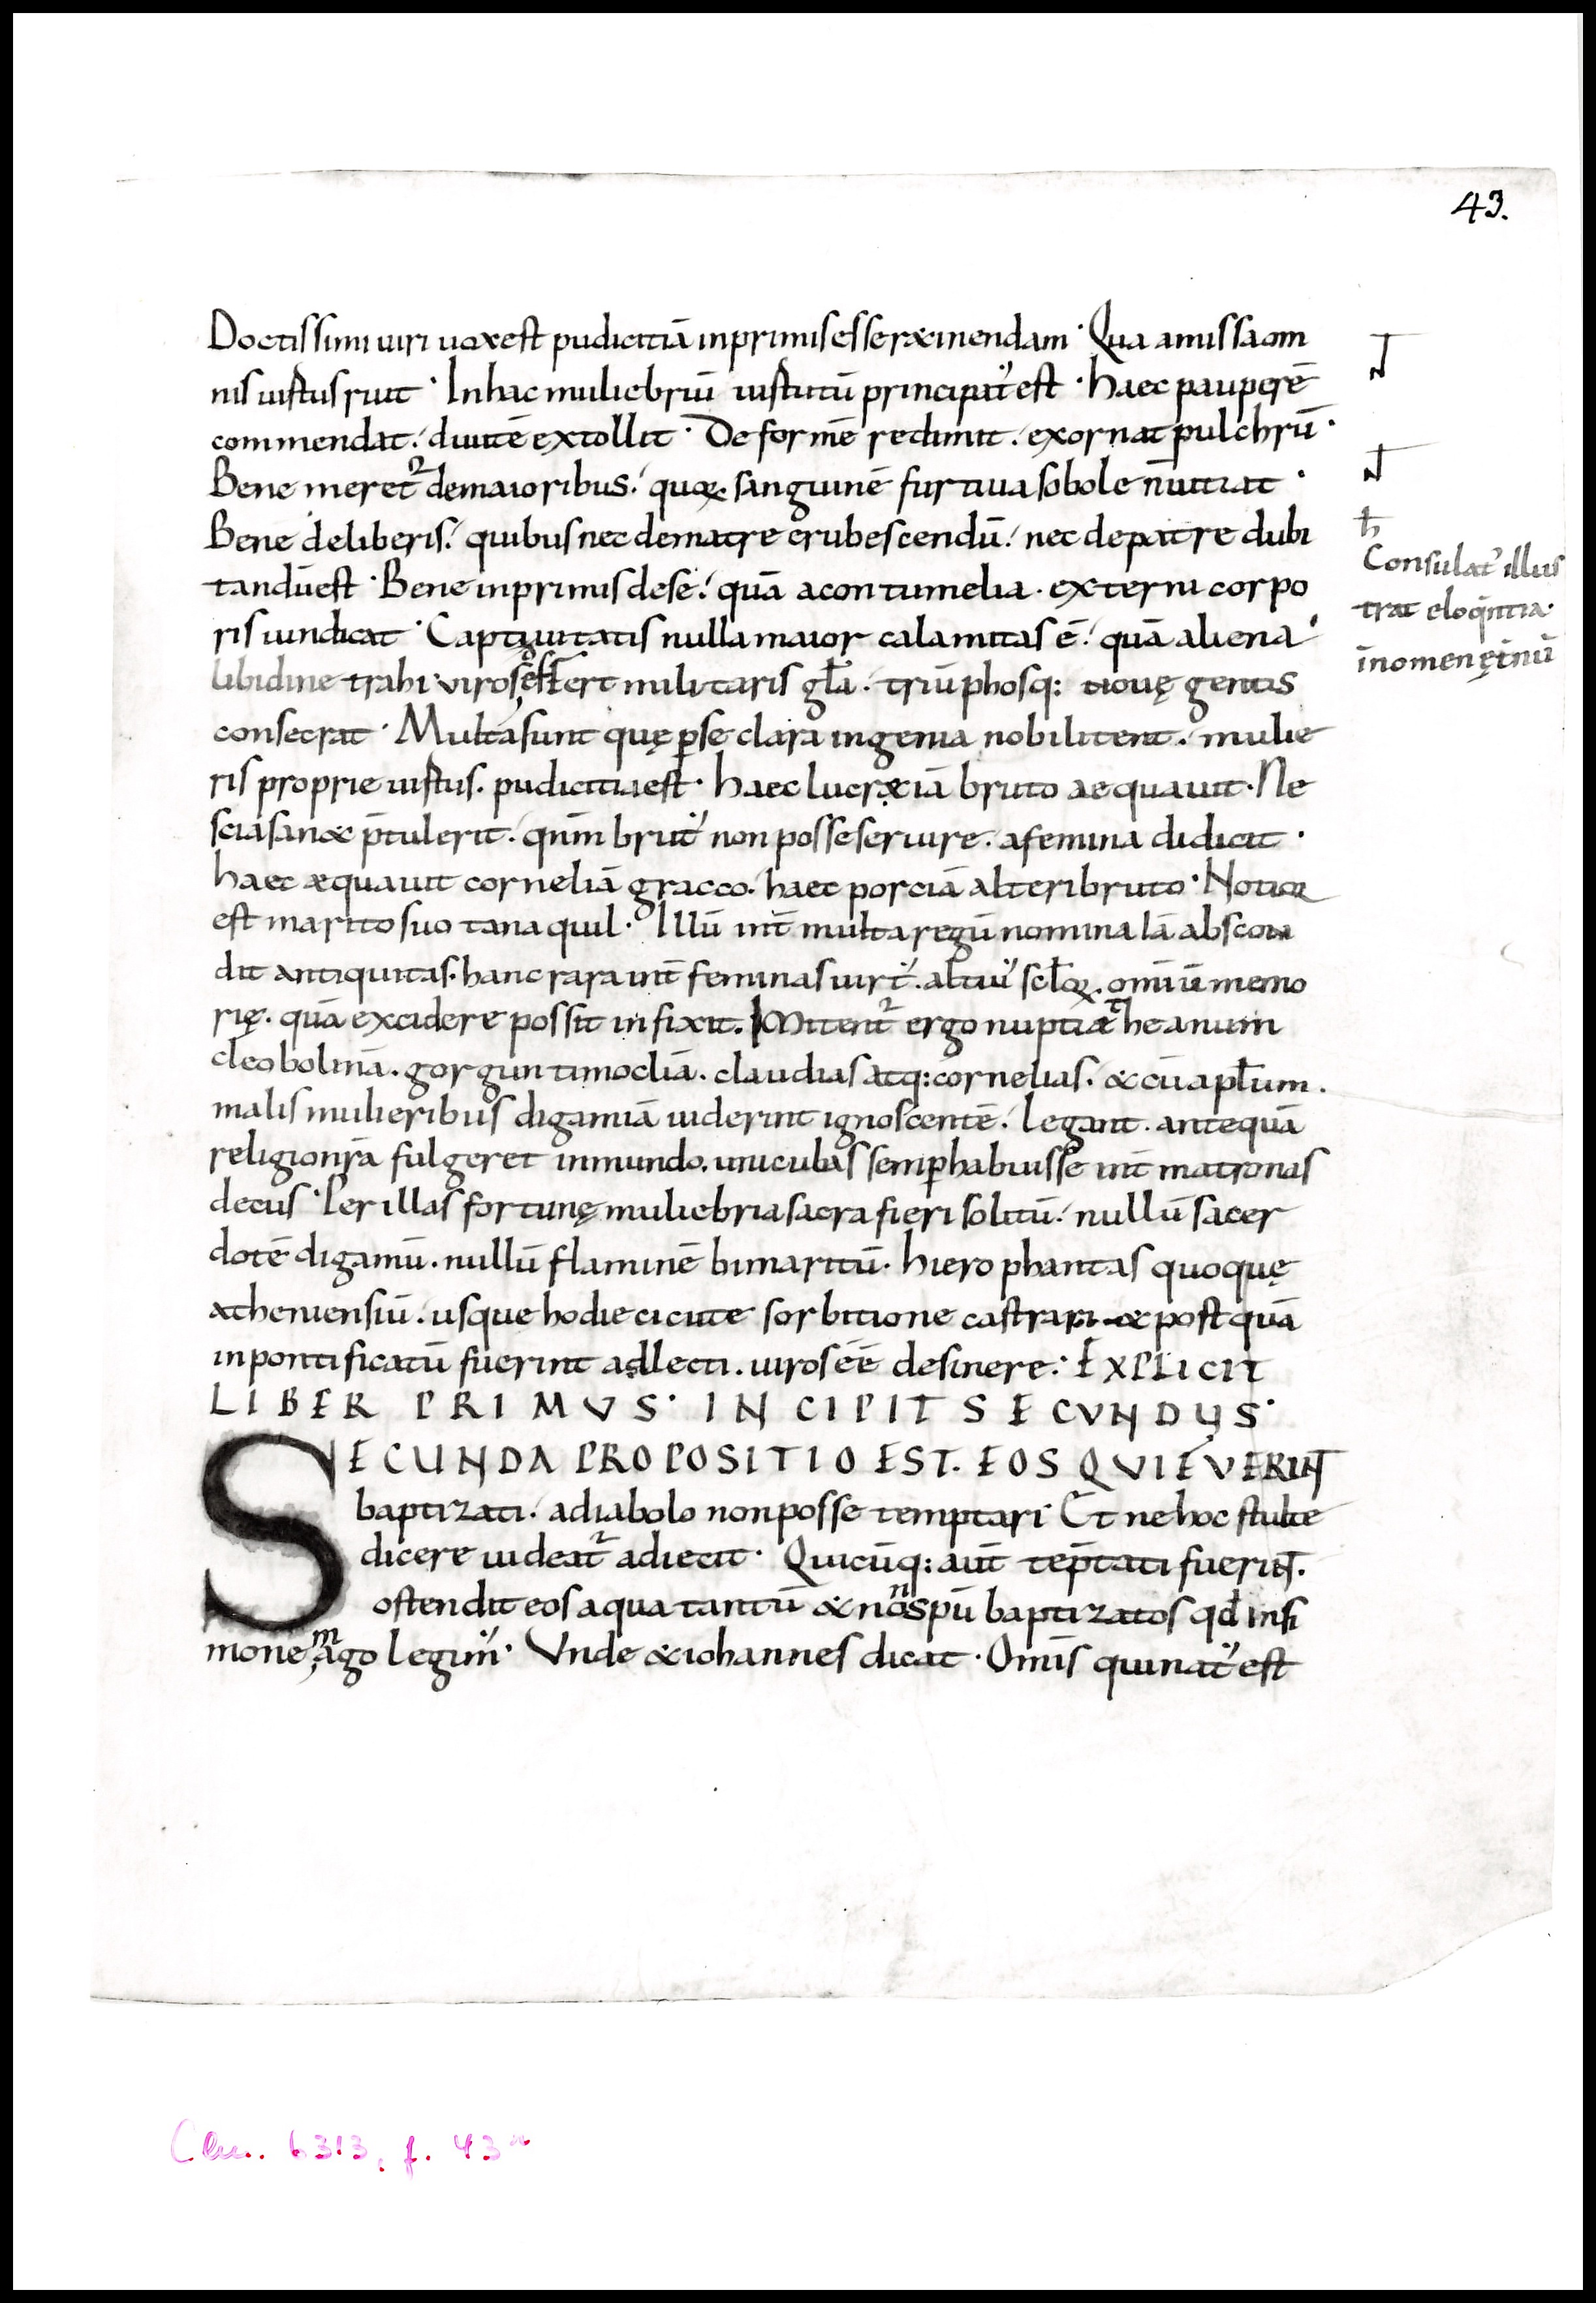 43.
Doctissimi uiri uox est pudicitiā inprimis esse r&inendam · Qua amissa om
nis uirtus ruit · In hac muliebriū uirtutū principat' est · haec pauperē
commendat. diuitē extollit · De formē redimit. exornat pulchrū ·
Bene meret' de maioribus. quoꝝ sanguinē furtiua sobole n̄ uitiat ·
Bene deliberis. quibus nec de matre erubescendū. nec de patre dubi
tandū est · Bene inprimis de se. quā a contumelia · externi corpo
ris uindicat · Captiuitatis nulla maior calamitas ē. quā aliena
libidine trahi · viros militaris gl̄a. triūphosq: nouę gentis
consecrat · Multa sunt quę ꝑse clara ingenia nobilitent. mulie
ris proprie uirtus. pudicitia est · haec lucr&iā bruto aequauit · Ne
scias an & p̄tulerit. qn̄m brut' non posse seruire. a femina didicit ·
haec æquauit corneliā gracco. haec porciā alteri bruto · Notior
est marito suo tanaquil · Illū int̄ multa regū nomina iā abscon
dit antiquitas. hanc rara int̄ feminas uirt'. altiu' scl̄oꝝ. omīū memo
rię. quā excidere possit infixit. Mitent' ergo nuptiæ theanum
cleobolinā. gorgun timocliā. claudias atq: cornelias. & cū apl̄um.
malis mulieribus digamiā uiderint ignoscentē. legant. antequā
religio nr̄a fulgeret in mundo. uniculas semꝑ habuisse int̄ matronas
decus · Per illas fortunę muliebria sacra fieri solitū. nullū sacer
dotē digamū. nullū flaminē bimaritū · hierophantas quoquę
atheniensiū. usque hodie cicute sorbitione castrari & postquā
in pontificatū fuerint adlecti. uiros ēē desinere: EXPLICIT
LIBER PRIMVS · INCIPIT SECVNDUS ·
SECUNDA PROPOSITIO EST. EOS QVI FVERINT
baptizati. a diabolo non posse temptari · Et ne hoc stulte
dicere uideat' adiecit · Quicūq: aut̄ tēptati fuerint̄.
ostendit eos aqua tantū & non spū baptizatos qd̄ in si
mone mago legim' · Vnde & iohannes dicat · Omīs qui nat' est
Consulat' illus
trat eloq̄ntia ·
Clm. 6313, f. 43r